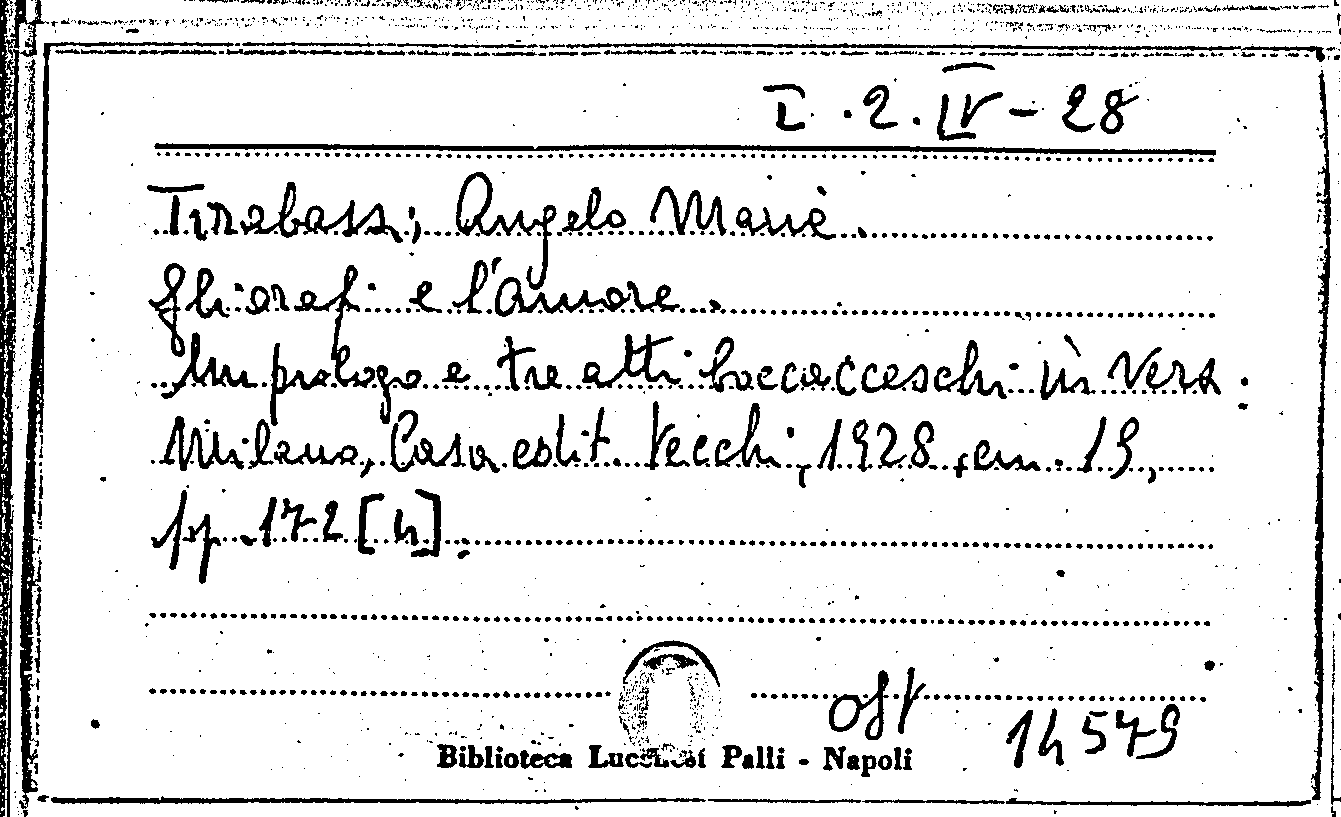 I. 2. IV - 28
Tirabassi, Angelo Maria.
Gli orafi e l'amore.
Un prologo e tre atti boccacceschi in versi.
Milano, Casa edit. Vecchi, 1928, cm. 19,
pp. 172 [4].
14579
Biblioteca Lucchesi Palli - Napoli